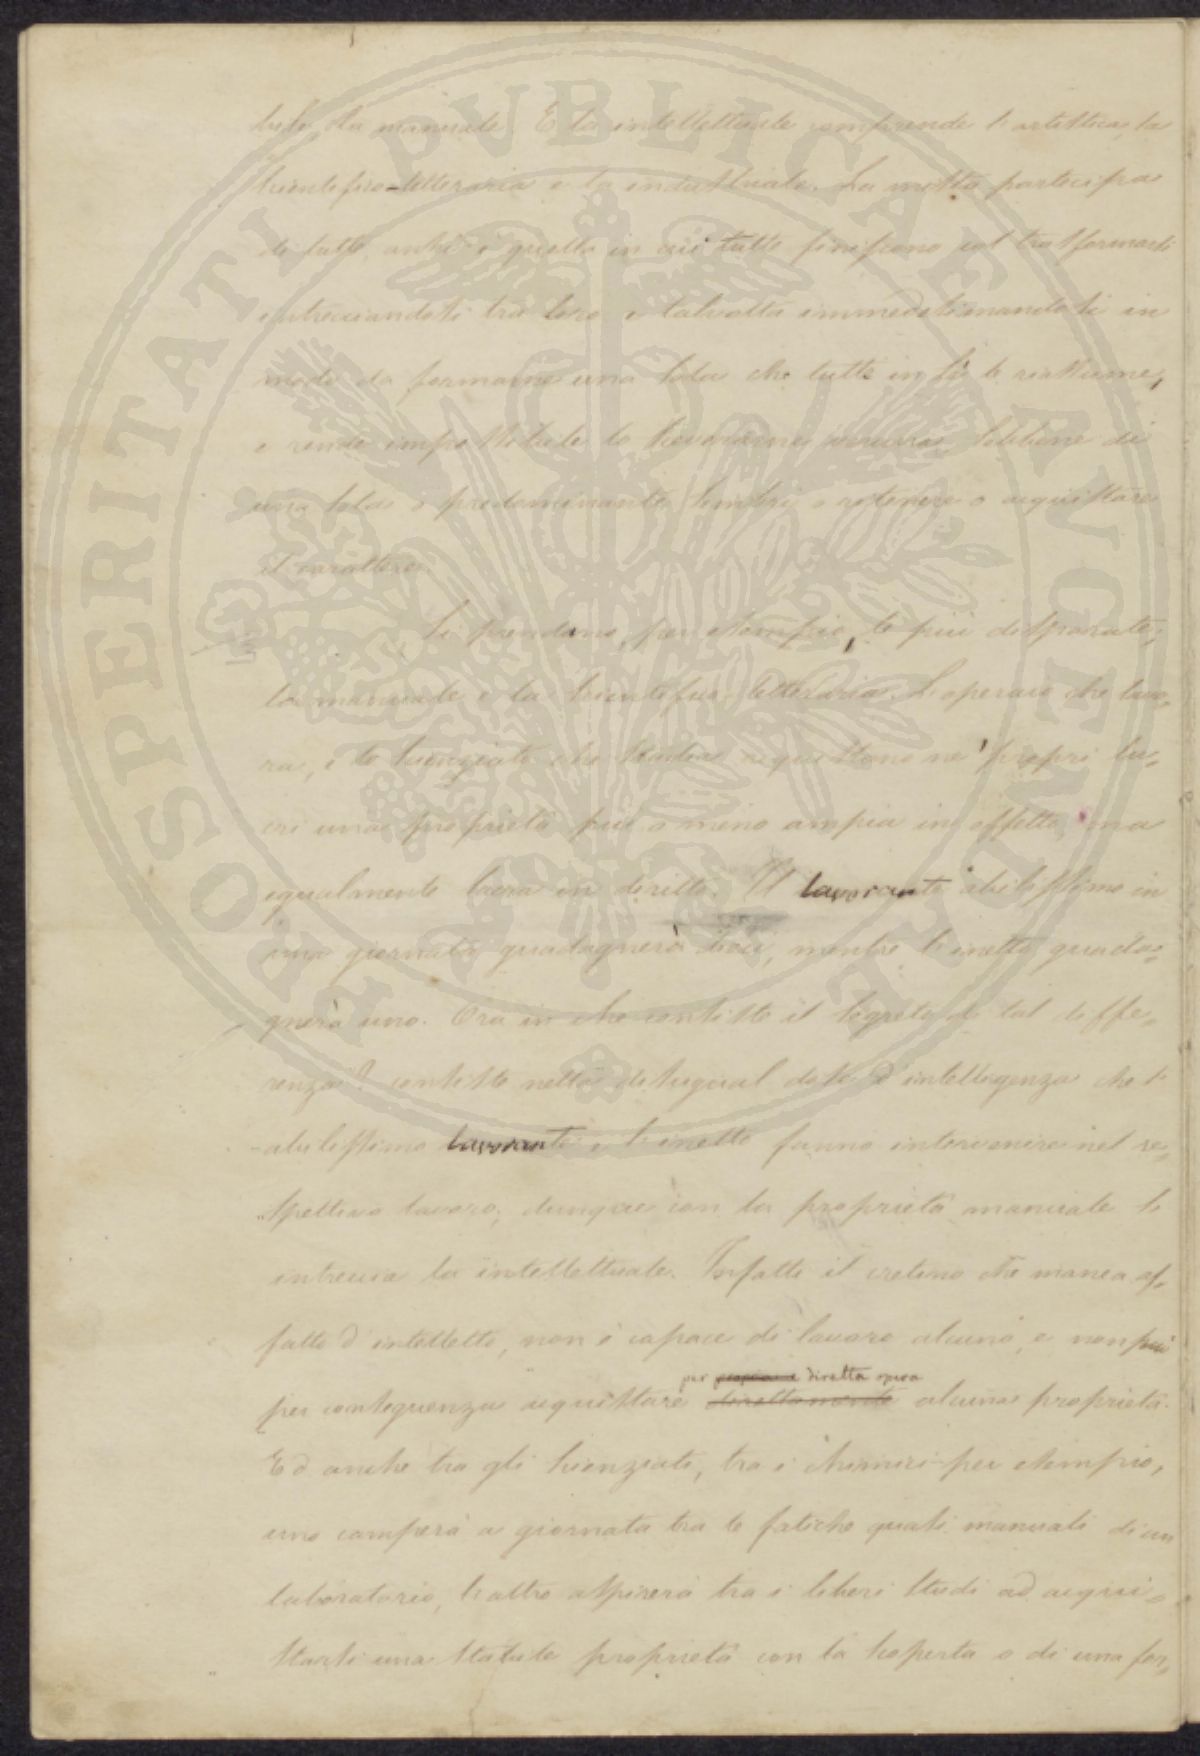 la manuale. E la intellettuale comprende l'artistica, la
scientifico-letteraria e la industriale. La mista partecipa
di tutte, anzi è quella in cui tutte finiscono col trasformarsi
intrecciandosi tra loro e talvolta immedesimandosi in
modo da formarne una sola che tutte in se le riassume,
e rende impossibile lo sceverarne veruna, sebbene di
una sola o predominante sembri o ritenere o acquistare
il carattere.
Si prendano, per esempio, le più disparate:
la manuale e la scientifico-letteraria. L'operaio che lavo-
ra, e lo scienziato che studia acquistano ne' propri lu-
cri una proprietà più o meno ampia in effetto, ma
egualmente sacra in diritto. Il lavorante abilissimo in
una giornata guadagnerà dieci, mentre l'inetto guada-
gnerà uno. Ora in che consiste il segreto di tal diffe-
renza? consiste nella disugual dose d'intelligenza che l'
abilissimo lavorante e l'inetto fanno intervenire nel re-
spettivo lavoro; dunque con la proprietà manuale s'
intreccia la intellettuale. Infatti il cretino che manca af-
fatto d'intelletto, non è capace di lavoro alcuno, e non può
per diretta opera
per conseguenza acquistare direttamente alcuna proprietà.
Ed anche tra gli scienziati, tra i chimici per esempio,
uno camperà a giornata tra le fatiche quasi manuali di un
laboratorio, l'altro aspirerà tra i liberi studi ad acqui-
starsi una stabile proprietà con la scoperta o di una for-
PROSPERITATI PVBLICAE AVGENDAE